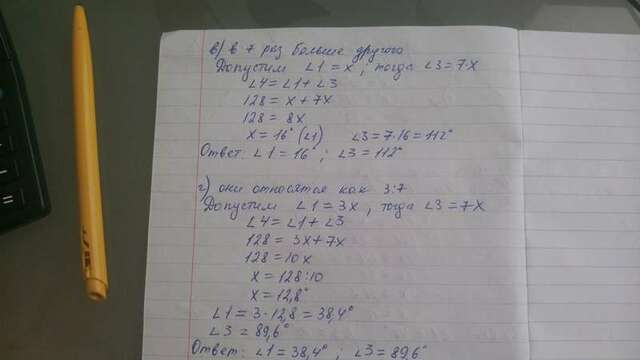 в) в 7 раз больше другого
Допустим ∠1 = x ; тогда ∠3 = 7x
∠4 = ∠1 + ∠3
128 = x + 7x
128 = 8x
x = 16° (∠1) ∠3 = 7·16 = 112°
Ответ: ∠1 = 16° ; ∠3 = 112°
г) они относятся как 3:7
Допустим ∠1 = 3x , тогда ∠3 = 7x
∠4 = ∠1 + ∠3
128 = 3x + 7x
128 = 10x
x = 128:10
x = 12,8°
∠1 = 3·12,8 = 38,4°
∠3 = 89,6°
Ответ: ∠1 = 38,4° ; ∠3 = 89,6°